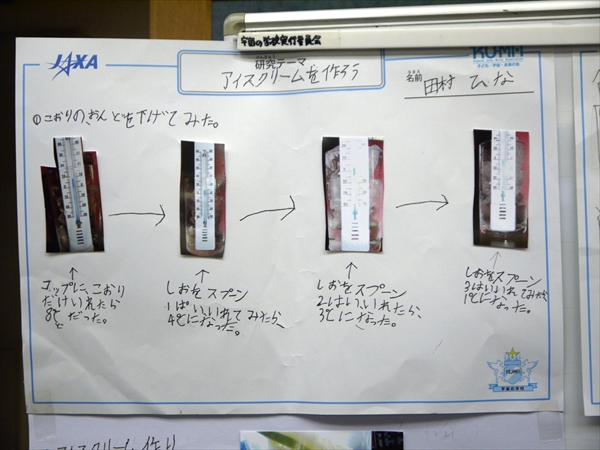 宇宙の学校実行委員会
JAXA
KU-MA
研究テーマ
アイスクリームを作ろう
名前
田村 ひな
①こおりの、おんどを下げてみた。
コップに、こおり
だけいれたら
8℃
だった。
しおをスプーン
1ぱい、いれてみたら、
4℃になった。
しおをスプーン
2はい、いれたら、
3℃になった。
しおをスプーン
3ばいいれてみたら
1℃になった。
宇宙の学校
アイスクリーム作り